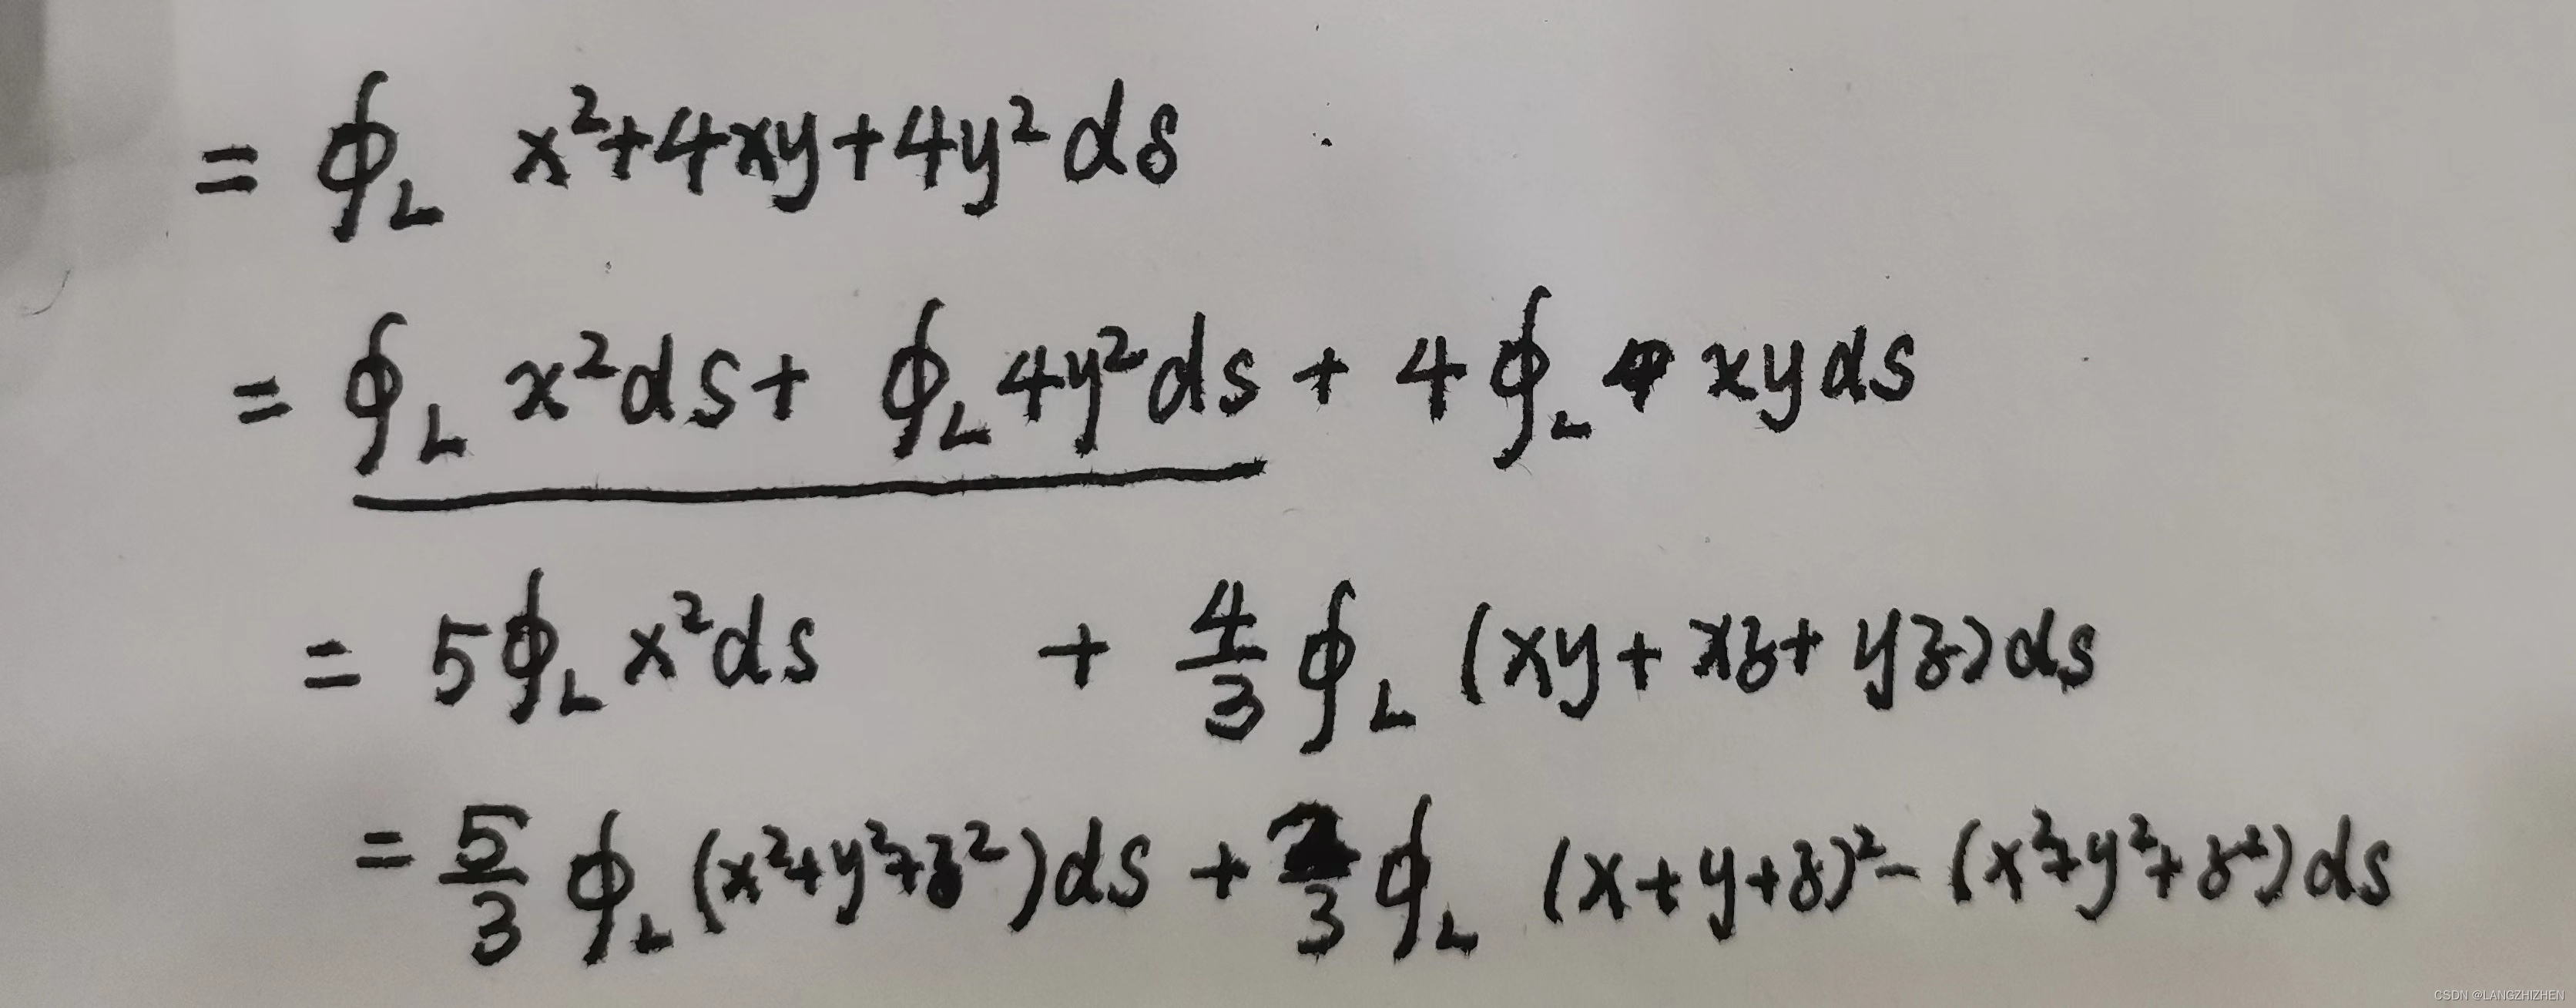 = ∮_L x²+4xy+4y² ds
= ∮_L x²ds + ∮_L 4y²ds + 4∮_L xyds
= 5∮_L x²ds + 4/3 ∮_L (xy+xz+yz)ds
= 5/3 ∮_L (x²+y²+z²)ds + 2/3 ∮_L (x+y+z)²-(x²+y²+z²)ds
CSDN @LANGZHIZHEN